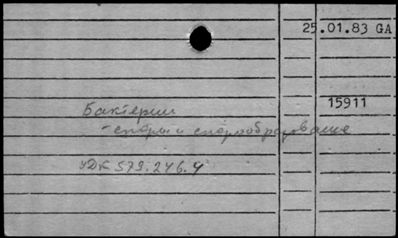 25.01.83 GA
15911
Бактерии
- споры и спорообразование
УДК 579.246.4